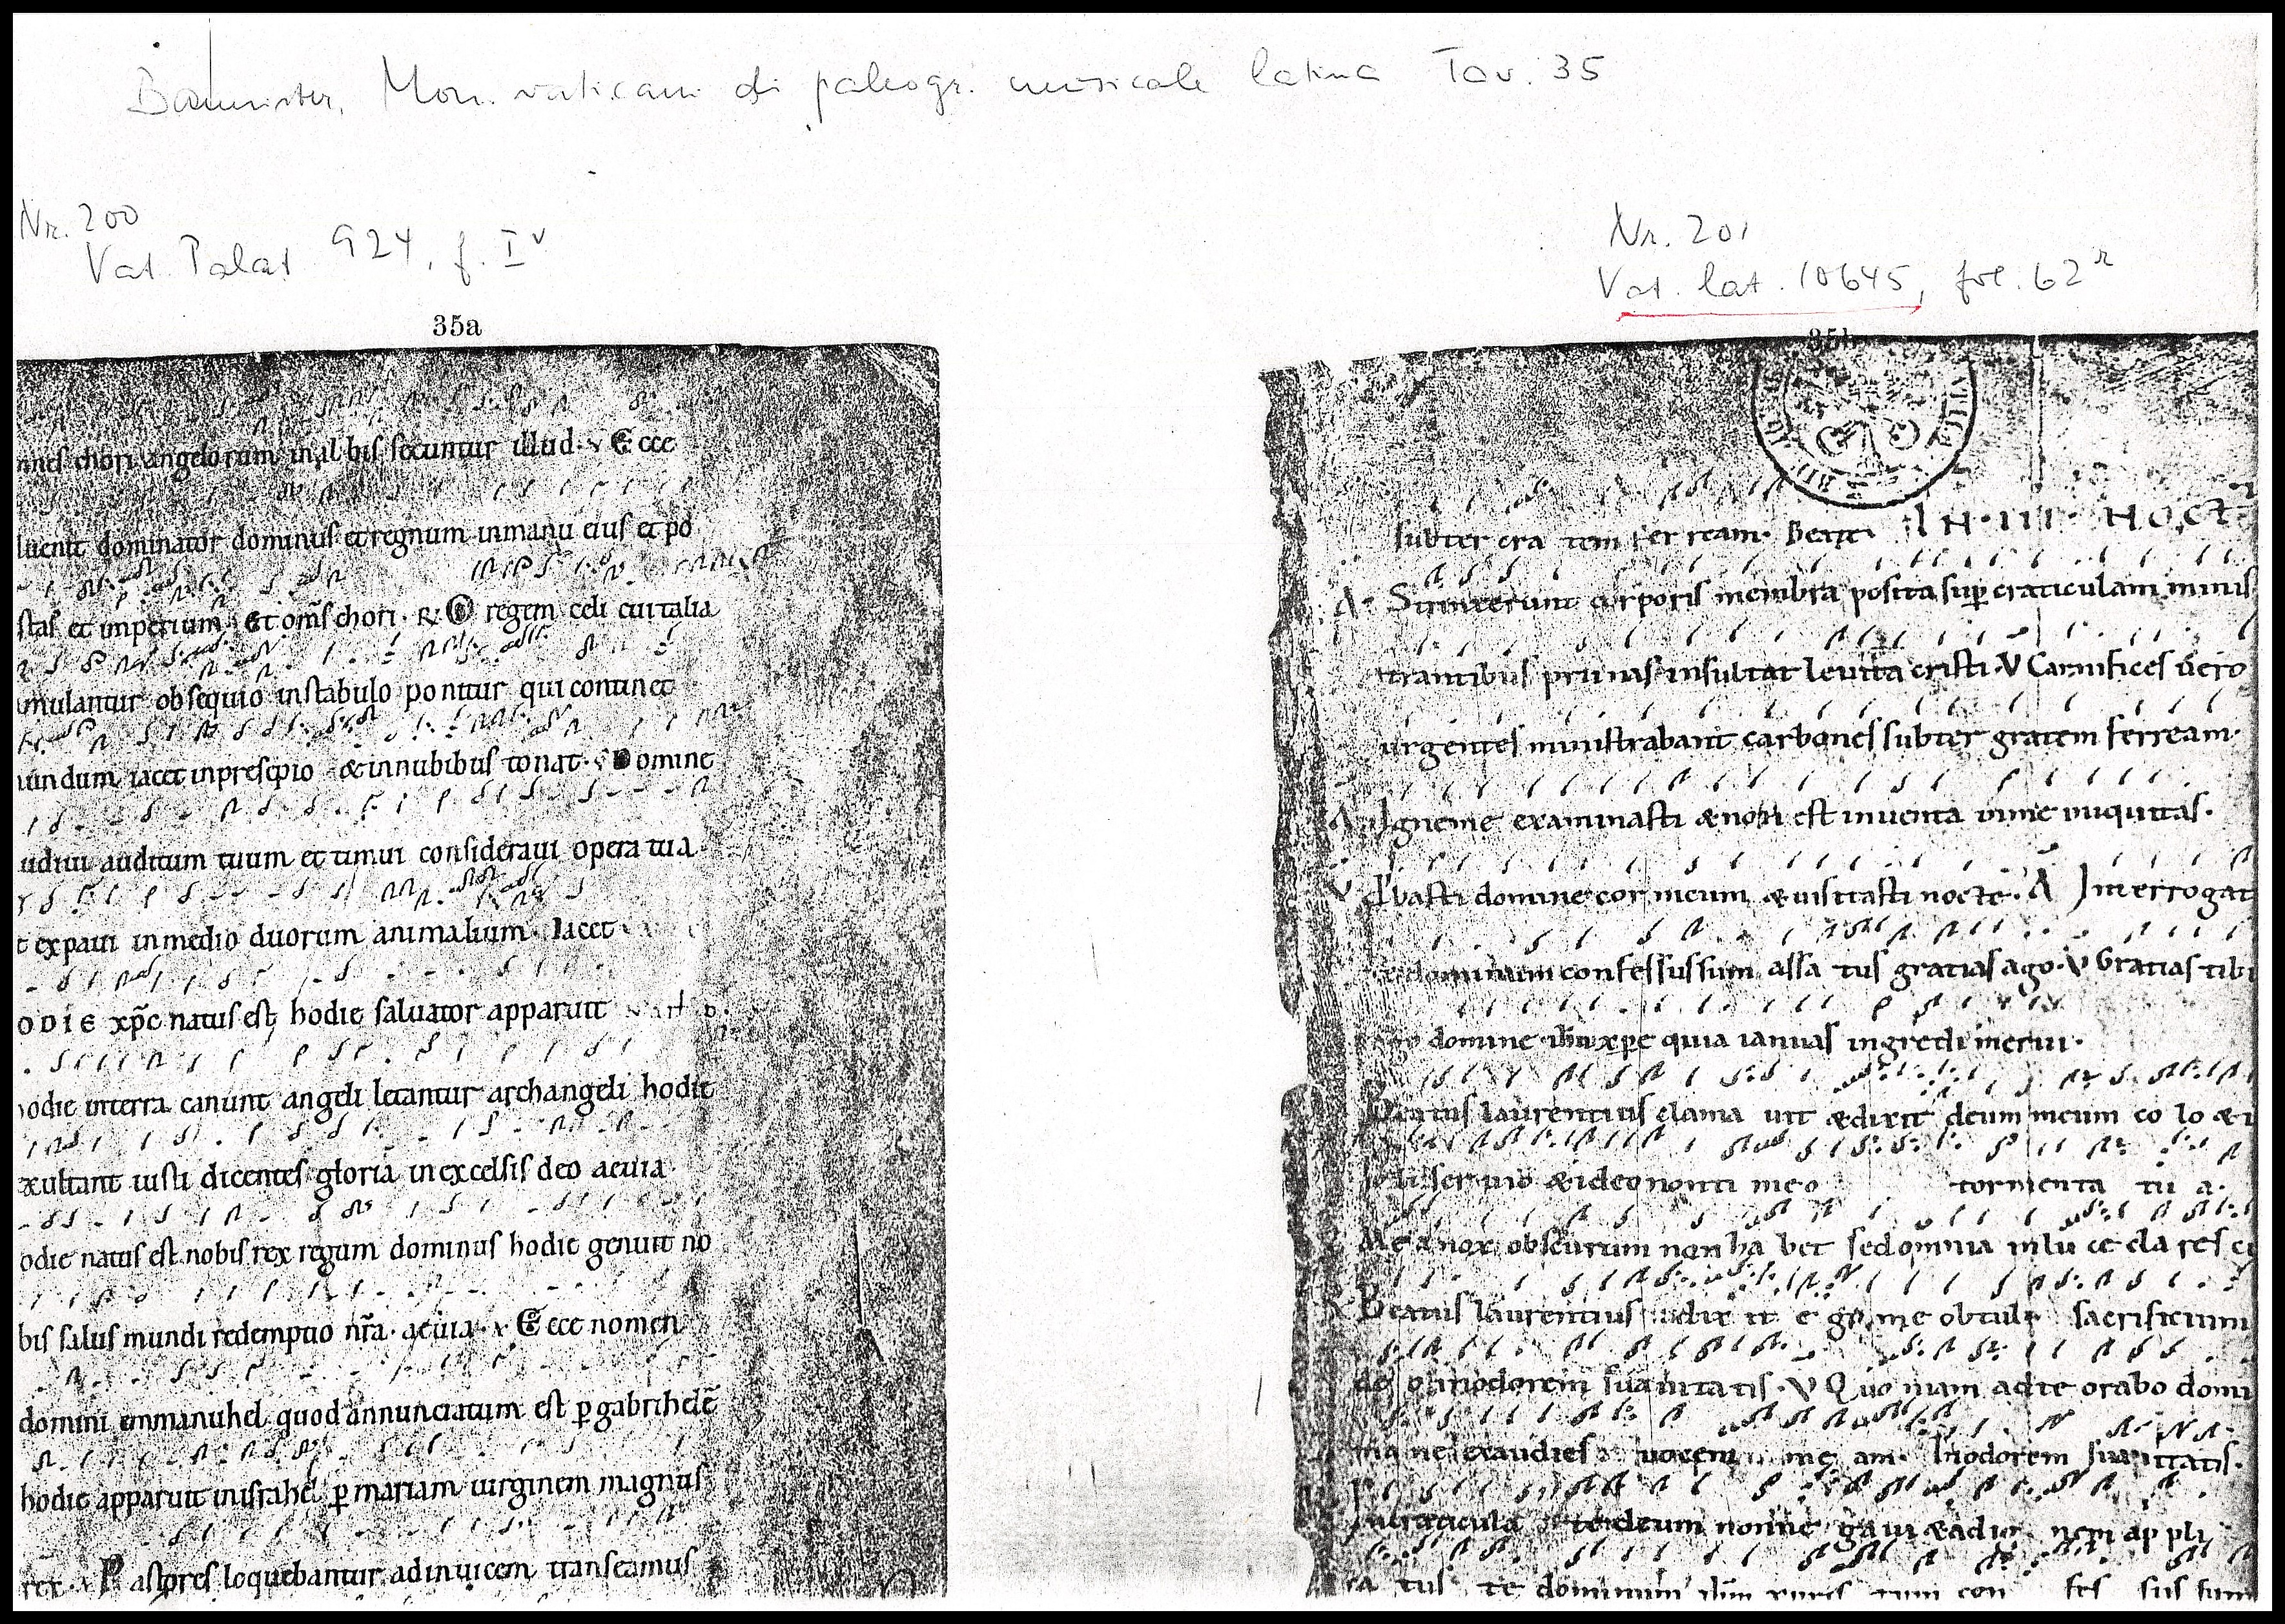 Bannister, Mon. vaticani di paleogr. musicale latina Tav. 35
Nr. 200
Vat. Palat 924, f. I v
35a
chori angelorum in al bis secuntur illud · v Ecce
uenit dominator dominus et regnum inmanu eius et po
stas et imperium · Et om̄s chori · R O regem celi cui talia
mulantur obsequio instabulo ponitur qui continet
undum iacet inpresepio & innubibus tonat · v Domine
udiui auditum tuum et timui consideraui opera tua ·
t expaui inmedio duorum animalium · Iacet
ODIE xp̄c natus est hodie saluator apparuit
odie interra canunt angeli letantur archangeli hodie
xultant iusti dicentes gloria inexcelsis deo aeuia ·
odie natus est nobis rex regum dominus hodie genuit no
bis salus mundi redemptio nr̄a · aeuia · v Ecce nomen
domini emmanuhel quod annunciatum est p gabrihelē
hodie apparuit inisrahel p mariam uirginem magnus
rex · v Pastores loquebantur adinuicem transeamus
Nr. 201
Vat. lat. 10645, fol. 62 r
35b
subter cra tem fer ream · Beati IN · III · NOCT
A · Sumxerunt corporis membra posita sup craticulam minis
trantibus prunas insultat leuita cristi · V Carnifices uero
urgentes ministrabant carbones subter gratem ferream ·
A Igneme examinasti & non est inuenta inme iniquitas ·
V Pbasti domine cor meum & uisitasti nocte · A Interrogat
dominum confessus sum assa tus gratias ago · V Gratias tibi
domine quia ianuas ingredi merui ·
Beatus laurentius clama uit & dixit deum meum co lo & i
li ser uio & ideo non ti meo tormenta tu a ·
Mea nox obscurum non ha bet sed omnia in lu ce cla res c
R Beatus laurentius dix it e go me obtuli sacrificium
do odorem suauita tis · V Quo niam ad te orabo domi
ma ne exaudies uocem me am · Inodorem suauitatis ·
Incraticula te deum non ne ga ui & ad ig nem ap pli
ca tus te dominum con fes sus sum